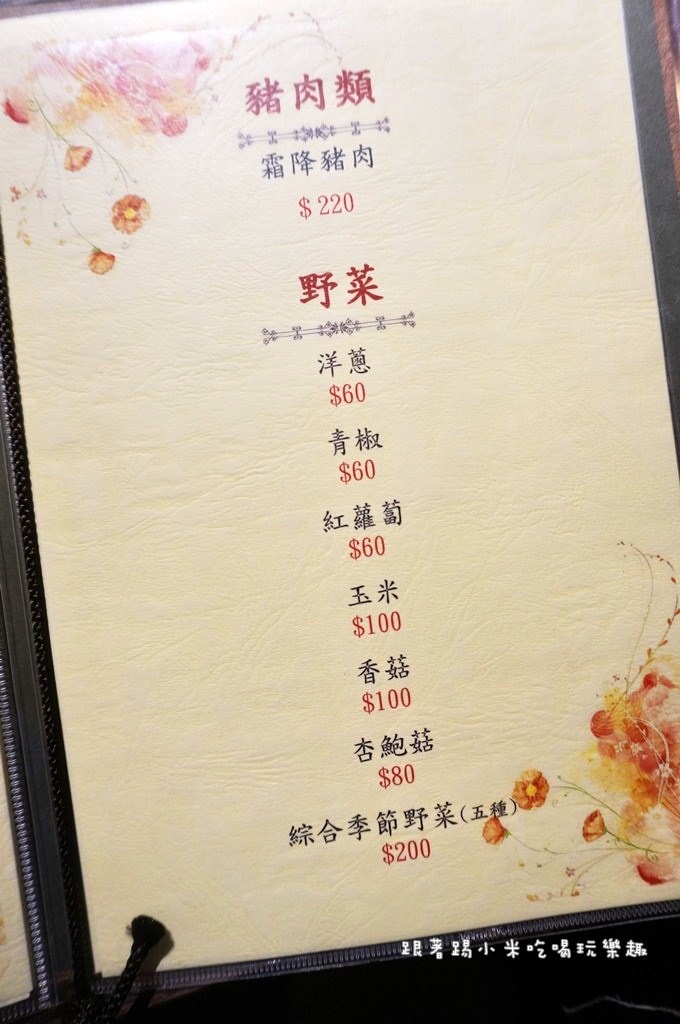 豬肉類
霜降豬肉
$220
野菜
洋蔥
$60
青椒
$60
紅蘿蔔
$60
玉米
$100
香菇
$100
杏鮑菇
$80
綜合季節野菜(五種)
$200
跟著踢小米吃喝玩樂趣